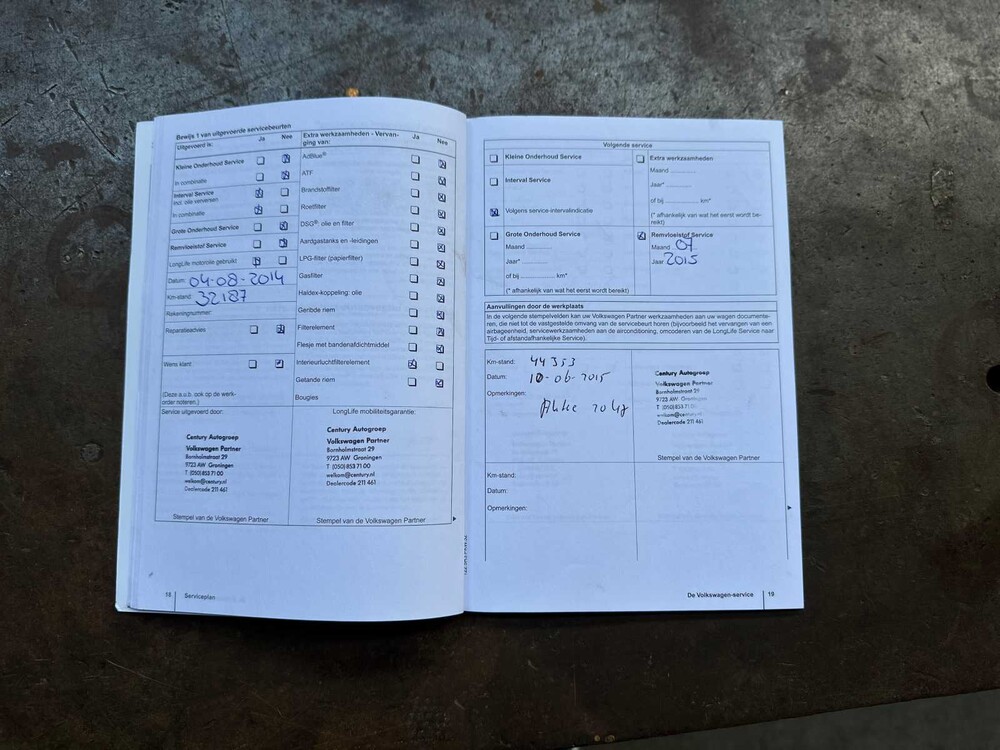 Bewijs 1 van uitgevoerde servicebeurten
Uitgevoerd is: Ja Nee
Kleine Onderhoud Service
In combinatie
Interval Service
Incl. olie verversen
In combinatie
Grote Onderhoud Service
Remvloeistof Service
LongLife motorolie gebruikt
Datum: 04-08-2014
Km-stand: 32187
Rekeningnummer:
Reparatieadvies
Wens klant:
(Deze a.u.b. ook op de werk-
order noteren.)
Extra werkzaamheden - Vervan-
ging van: Ja Nee
AdBlue®
ATF
Brandstoffilter
Roetfilter
DSG®: olie en filter
Aardgastanks en -leidingen
LPG-filter (papierfilter)
Gasfilter
Haldex-koppeling: olie
Geribde riem
Filterelement
Flesje met bandenafdichtmiddel
Interieurluchtfilterelement
Getande riem
Bougies
Service uitgevoerd door:
Century Autogroep
Volkswagen Partner
Bornholmstraat 29
9723 AW Groningen
T (050) 853 71 00
welkom@century.nl
Dealercode 211 461
Stempel van de Volkswagen Partner
LongLife mobiliteitsgarantie:
Century Autogroep
Volkswagen Partner
Bornholmstraat 29
9723 AW Groningen
T (050) 853 71 00
welkom@century.nl
Dealercode 211 461
Stempel van de Volkswagen Partner
18 Serviceplan
Volgende service
Kleine Onderhoud Service
Interval Service
Volgens service-intervalindicatie
Grote Onderhoud Service
Maand
Jaar*
of bij km*
(* afhankelijk van wat het eerst wordt bereikt)
Extra werkzaamheden
Maand
Jaar*
of bij km*
(* afhankelijk van wat het eerst wordt be-
reikt)
Remvloeistof Service
Maand 07
Jaar 2015
Aanvullingen door de werkplaats
In de volgende stempelvelden kan uw Volkswagen Partner werkzaamheden aan uw wagen documente-
ren, die niet tot de vastgestelde omvang van de servicebeurt horen (bijvoorbeeld het vervangen van een
airbageenheid, servicewerkzaamheden aan de airconditioning, omcoderen van de LongLife Service naar
Tijd- of afstandafhankelijke Service).
Km-stand: 44353
Datum: 10-06-2015
Opmerkingen:
Century Autogroep
Volkswagen Partner
Bornholmstraat 29
9723 AW Groningen
T (050) 853 71 00
welkom@century.nl
Dealercode 211 461
Stempel van de Volkswagen Partner
Km-stand:
Datum:
Opmerkingen:
De Volkswagen-service 19